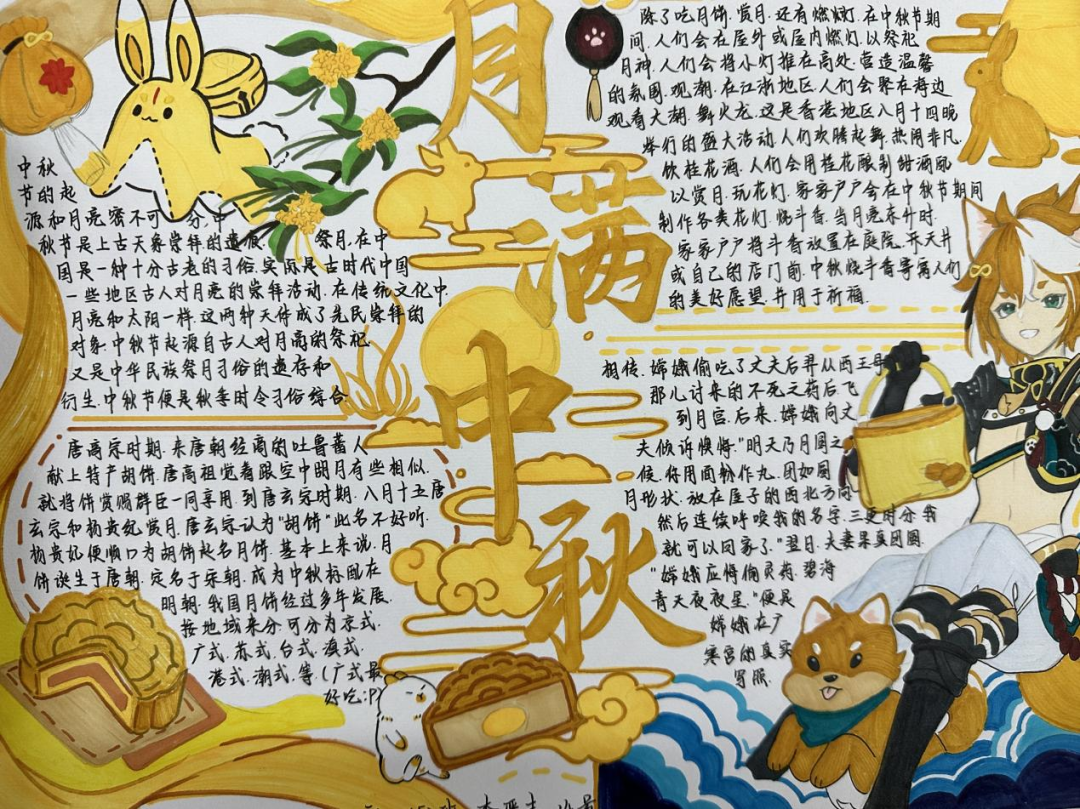 月满中秋
中秋
节的起
源和月亮密不可分,中
秋节是上古天象崇拜的遗痕.祭月,在中
国是一种十分古老的习俗,实际是古时代中国
一些地区古人对月亮的崇拜活动.在传统文化中,
月亮和太阳一样,这两种天体成了先民崇拜的
对象.中秋节起源自古人对月亮的祭祀
又是中华民族祭月习俗的遗存和
衍生.中秋节便是秋季时令习俗综合
唐高宗时期,来唐朝经商的吐鲁蕃人
献上特产胡饼,唐高祖觉着跟空中明月有些相似.
就将饼赏赐群臣一同享用.到唐玄宗时期,八月十五唐
玄宗和杨贵妃赏月,唐玄宗认为"胡饼"此名不好听.
杨贵妃便顺口为胡饼起名月饼.基本上来说,月
饼诞生于唐朝,定名于宋朝,成为中秋标配在
明朝.我国月饼经过多年发展.
按地域来分,可分为京式.
广式.苏式.台式.滇式.
港式.潮式.等.(广式最
好吃:P)
除了吃月饼.赏月.还有燃灯.在中秋节期
间,人们会在屋外或屋内燃灯.以祭祀
月神.人们会将小灯推在高处.营造温馨
的氛围.观潮.在江浙地区.人们会聚在海边
观看大潮.舞火龙.这是香港地区八月十四晚
举行的盛大活动.人们欢腾起舞.热闹非凡.
饮桂花酒.人们会用桂花酿制甜酒配
以赏月.玩花灯.家家户户会在中秋节期间
制作各类花灯.烧斗香.当月亮东升时.
家家户户将斗香放置在庭院.开天井
或自己的店门前.中秋烧斗香寄寓人们
的美好愿望.并用于祈福.
相传.嫦娥偷吃了丈夫后羿从西王母
那儿讨来的不死之药后.飞
到月宫.后来.嫦娥向丈
夫倾诉懊悔:"明天乃月圆之
候.你用面粉作丸.团如圆
月形状.放在屋子的西北方向
然后连续呼唤我的名字.三更时分我
就可以回家了."翌日.夫妻果真团圆.
"嫦娥应悔偷灵药.碧海
青天夜夜星."便是
嫦娥在广
寒宫的真实
写照.